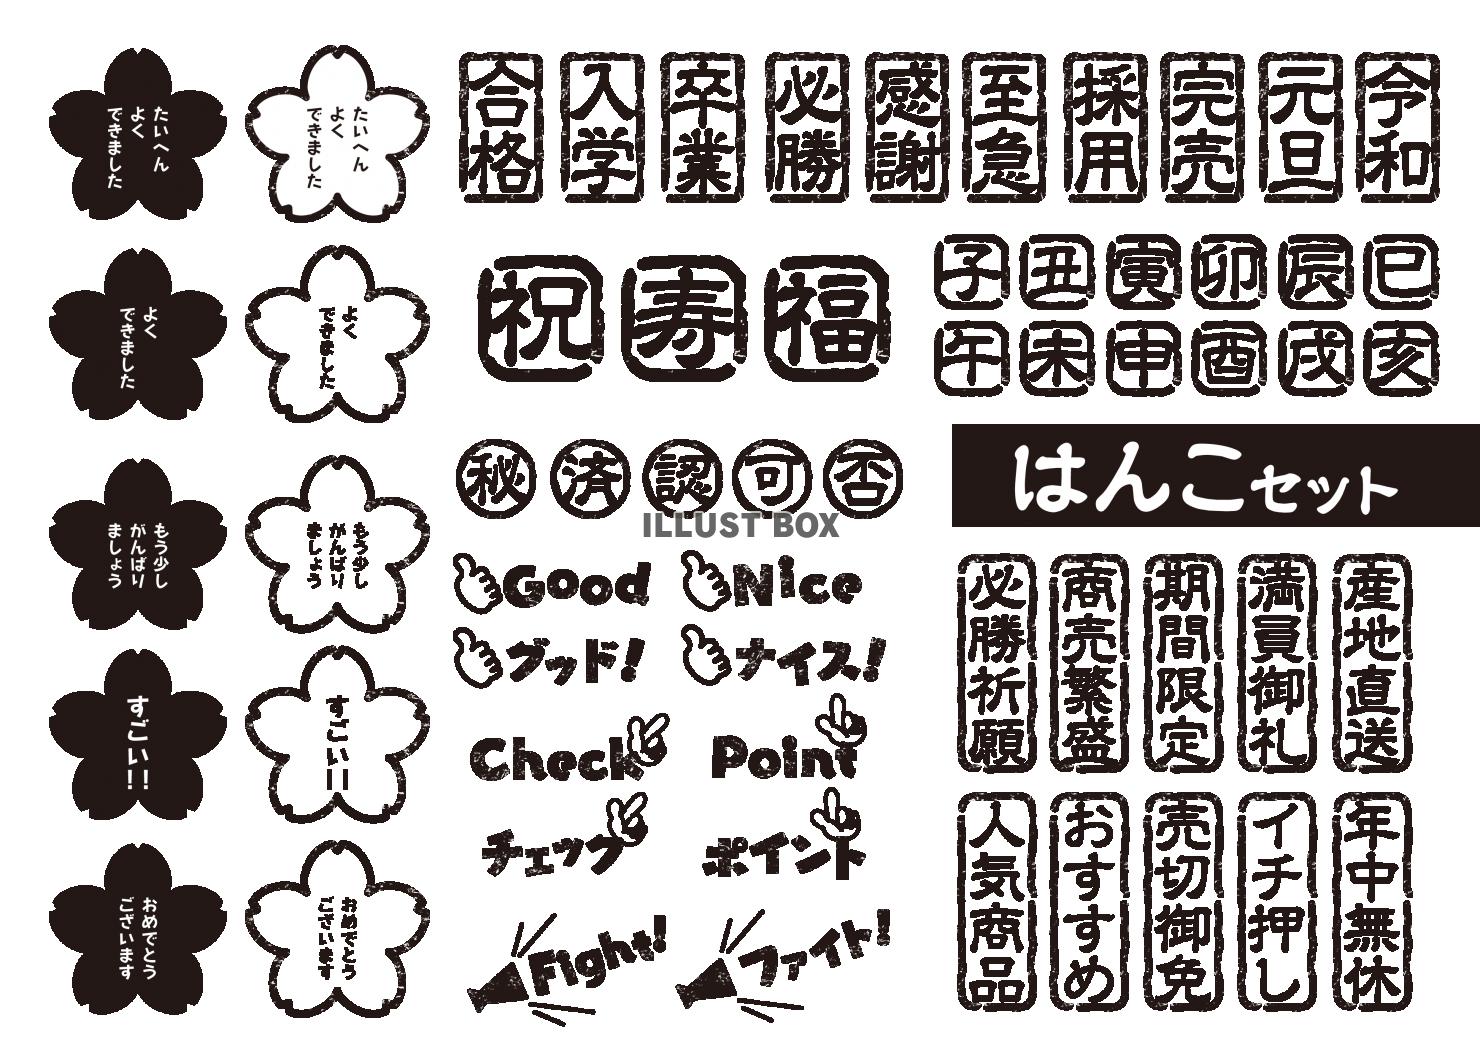 たいへん
よく
できました
たいへん
よく
できました
よく
できました
よく
できました
もう少し
がんばり
ましょう
もう少し
がんばり
ましょう
すごい!!
すごい!!
おめでとう
ございます
おめでとう
ございます
合格
入学
卒業
必勝
感謝
至急
採用
完売
元旦
令和
祝
寿
福
子
丑
寅
卯
辰
巳
午
未
申
酉
戌
亥
はんこセット
秘
済
認
可
否
ILLUST BOX
Good
Nice
グッド!
ナイス!
Check
Point
チェック
ポイント
Fight!
ファイト!
必勝祈願
商売繁盛
期間限定
満員御礼
産地直送
人気商品
おすすめ
売切御免
イチ押し
年中無休